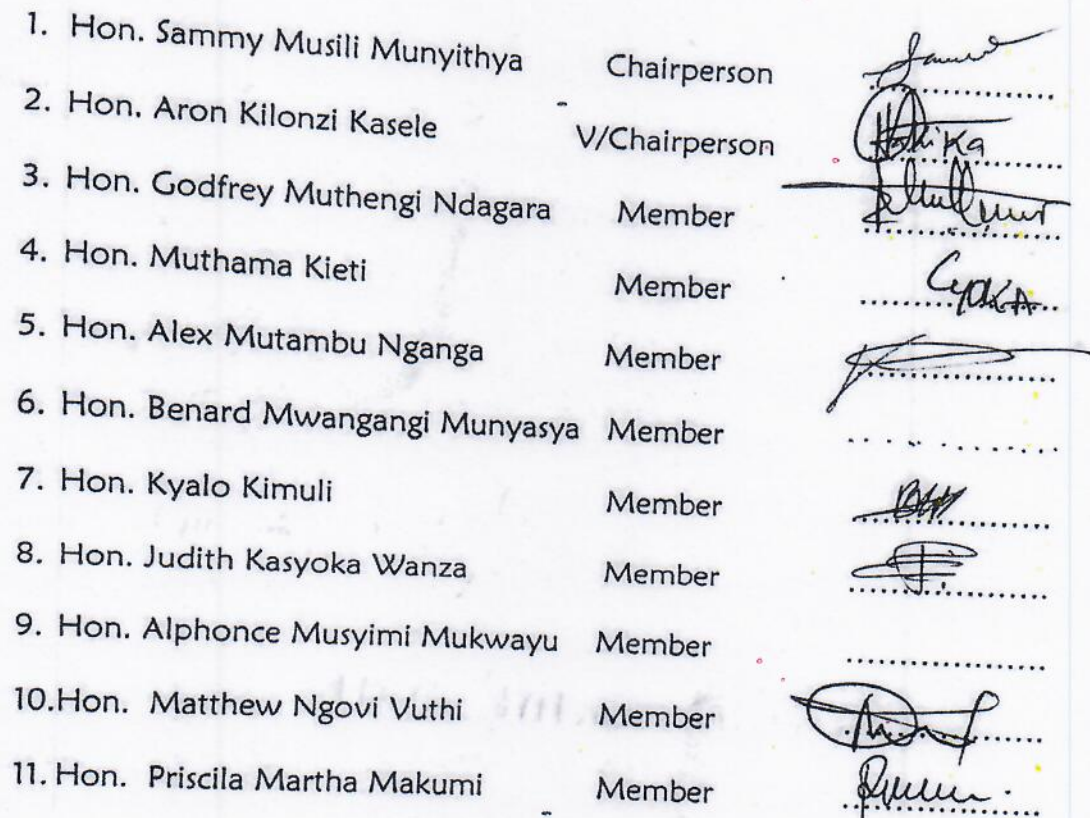 1. Hon. Sammy Musili Munyithya Chairperson
2. Hon. Aron Kilonzi Kasele V/Chairperson
3. Hon. Godfrey Muthengi Ndagara Member
4. Hon. Muthama Kieti Member
5. Hon. Alex Mutambu Nganga Member
6. Hon. Benard Mwangangi Munyasya Member ..........
7. Hon. Kyalo Kimuli Member
8. Hon. Judith Kasyoka Wanza Member
9. Hon. Alphonce Musyimi Mukwayu Member ....................
10.Hon. Matthew Ngovi Vuthi Member
11. Hon. Priscila Martha Makumi Member